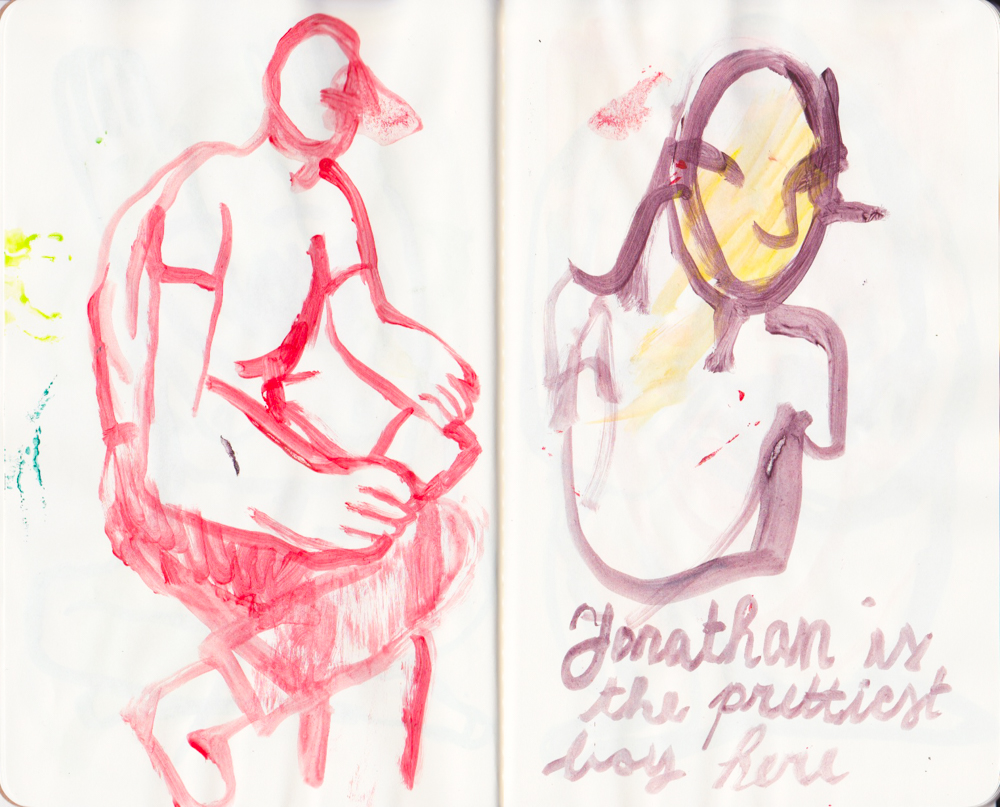 Jonathan is
the prettiest
boy here